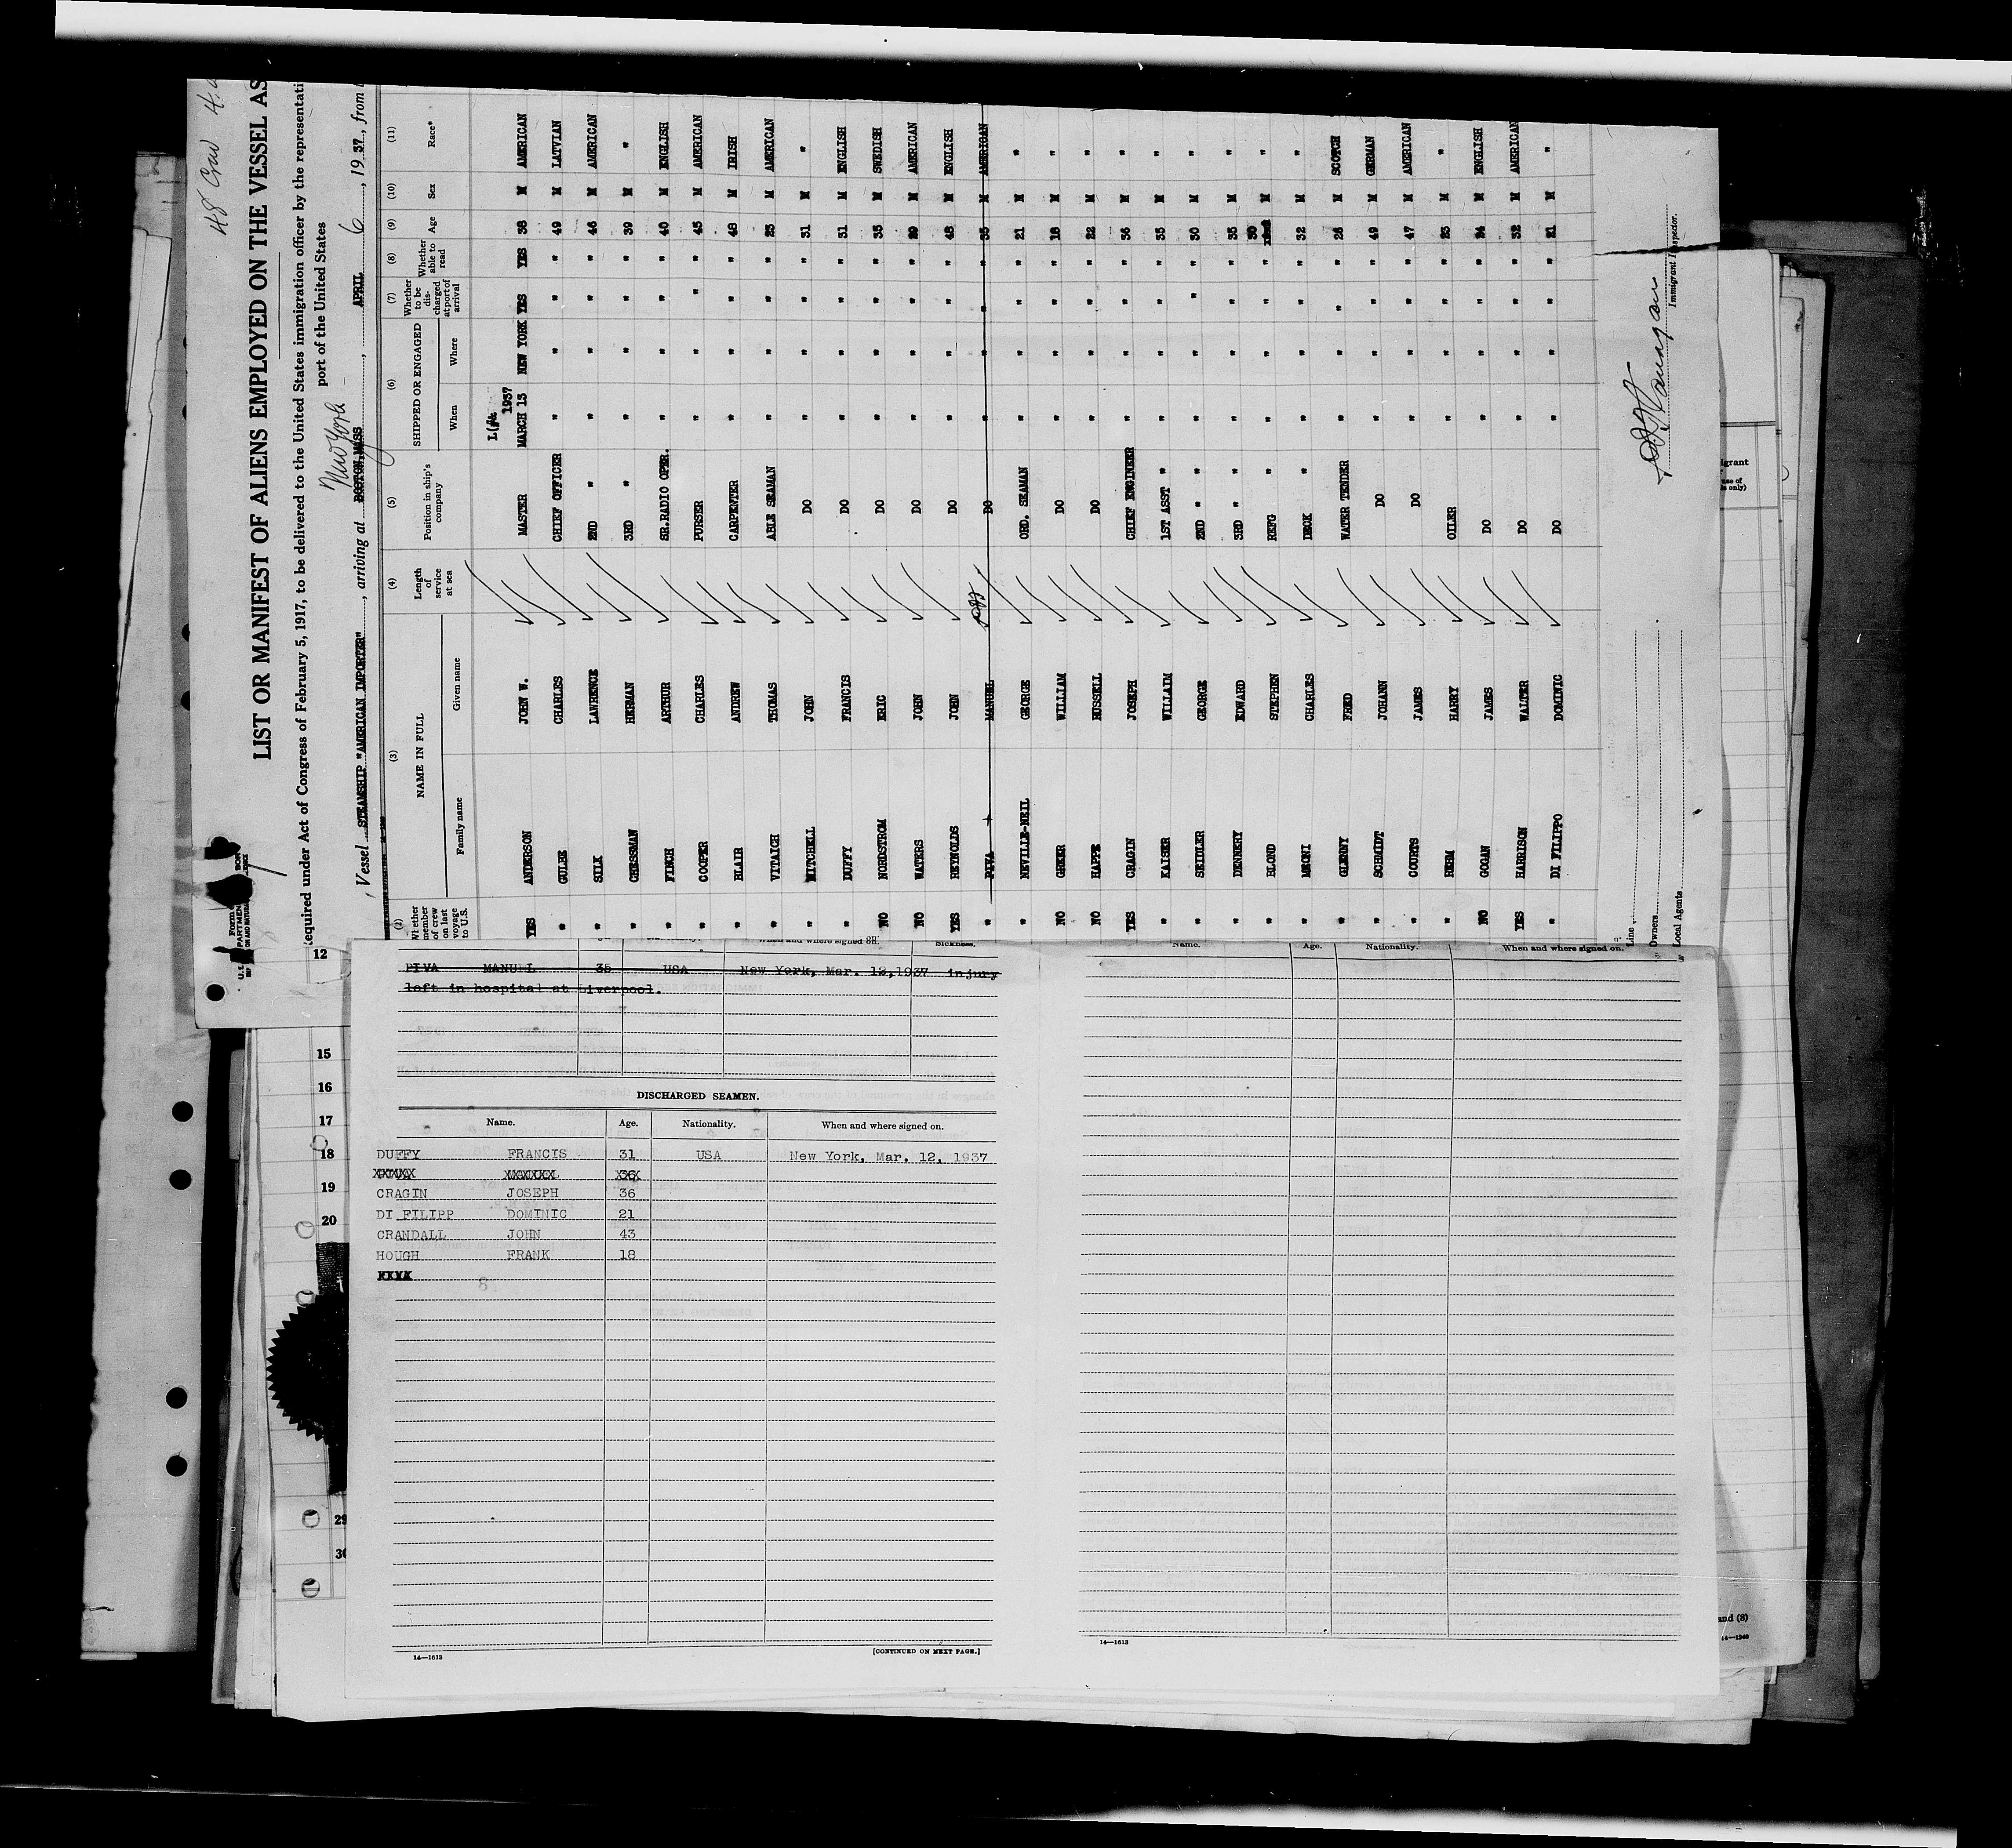 48 Crew
LIST OR MANIFEST OF ALIENS EMPLOYED ON THE VESSEL AS
Required under Act of Congress of February 5, 1917, to be delivered to the United States immigration officer by the representati
port of the United States
New York
Vessel STEAMSHIP "AMERICAN IMPORTER", arriving at BOSTON, MASS, APRIL 6, 1937, from
(2) (3) (4) (5) (6) (7) (8) (9) (10) (11)
Whether member of crew on last voyage to U.S. NAME IN FULL Length of service at sea Position in ship's company SHIPPED OR ENGAGED Whether to be discharged at port of arrival Whether able to read Age Sex Race*
Family name Given name When Where
1937
YES ANDERSON JOHN W. MASTER MARCH 15 NEW YORK YES YES 38 M AMERICAN
" GULBE CHARLES CHIEF OFFICER " " " " 49 M LATVIAN
" SILK LAWRENCE 2ND " " " " " 46 M AMERICAN
" CHESSMAN HERMAN 3RD " " " " " 39 M "
" FINCH ARTHUR SR.RADIO OPER. " " " " 40 M ENGLISH
" COOPER CHARLES PURSER " " " " 45 M AMERICAN
" BLAIR ANDREW CARPENTER " " " " 48 M IRISH
" VITAICH THOMAS ABLE SEAMAN " " " " 25 M AMERICAN
" MITCHELL JOHN DO " " " " 31 M "
" DUFFY FRANCIS DO " " " " 31 M ENGLISH
NO NORDSTROM ERIC DO " " " " 35 M SWEDISH
NO WATERS JOHN DO " " " " 29 M AMERICAN
YES REYNOLDS JOHN DO " " " " 48 M ENGLISH
" PIVA MANUEL DO " " " " 35 M AMERICAN
" NEVILLE-NEIL GEORGE ORD. SEAMAN " " " " 21 M "
NO GREER WILLIAM DO " " " " 18 M "
NO HAPPE RUSSELL DO " " " " 22 M "
YES CRAGIN JOSEPH CHIEF ENGINEER " " " " 36 M "
" KAISER WILLAIM 1ST ASST " " " " " 35 M "
" SEIDLER GEORGE 2ND " " " " " " 30 M "
" DENNERY EDWARD 3RD " " " " " " 35 M "
" BLOND STEPHEN REFG " " " " " 30 M "
" MEONI CHARLES DECK " " " " " 32 M "
" GLENNY FRED WATER TENDER " " " " 28 M SCOTCH
" SCHMIDT JOHANN DO " " " " 49 M GERMAN
" COURTS JAMES DO " " " " 47 M AMERICAN
" REHM HARRY OILER " " " " 23 M "
NO GOGAN JAMES DO " " " " 24 M ENGLISH
YES HARRISON WALTER DO " " " " 32 M AMERICAN
" DI FILIPPO DOMINIC DO " " " " 21 M "
Immigrant Inspector.
Line
Owners
Local Agents
12
15
16
17
18
19
20
29
When and where signed on. Sickness.
PIVA MANUEL 35 USA New York, Mar. 12,1937 injury
left in hospital at Liverpool.
DISCHARGED SEAMEN.
Name. Age. Nationality. When and where signed on.
DUFFY FRANCIS 31 USA New York, Mar. 12, 1937
CRAGIN JOSEPH 36
DI FILIPP DOMINIC 21
CRANDALL JOHN 43
HOUGH FRANK 18
14—1613
[CONTINUED ON NEXT PAGE.]
Name. Age. Nationality. When and where signed on.
14—1613
and (8)
14—1240